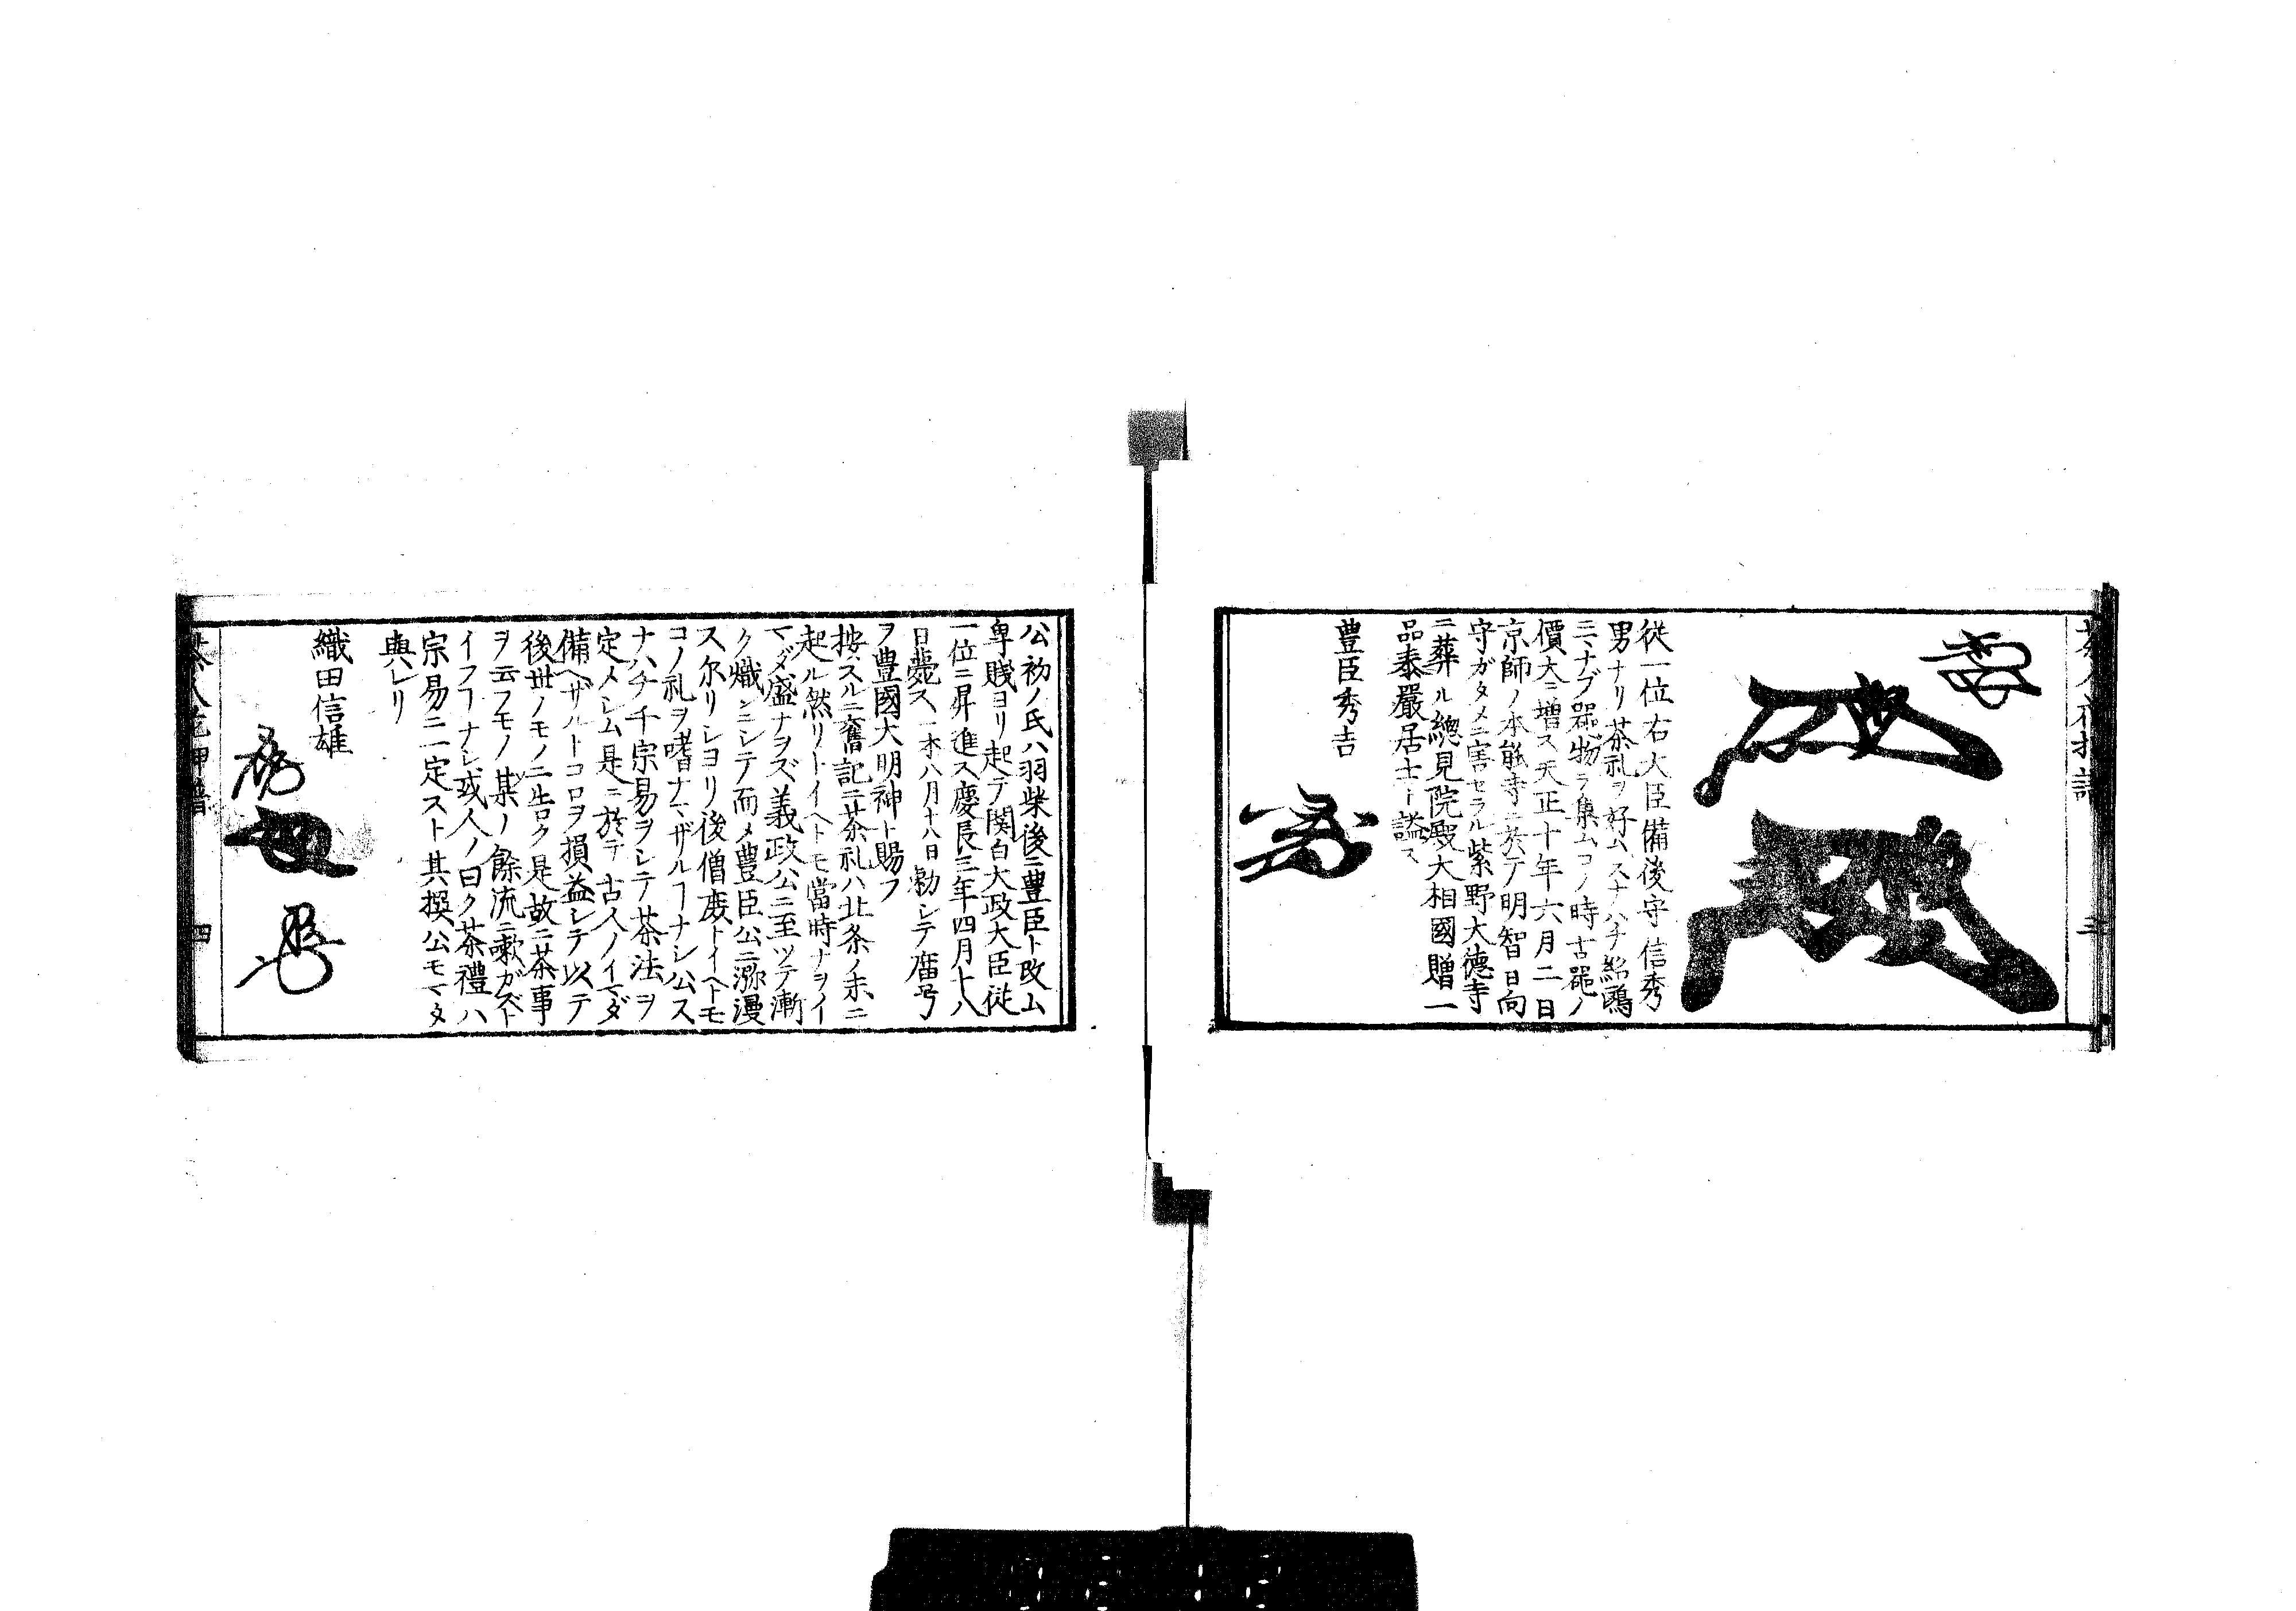 從一位右大臣備後守信秀
男ナリ茶礼ヲ好ムスナハチ紹鷗
ニマナブ器物ヲ集ムコノ時古器ノ
價大ニ增ス天正十年六月二日
京師ノ本能寺ニ於テ明智日向
守ガタメニ害セラル紫野大德寺
ニ葬ル總見院殿大相國贈一
品泰巖居士ト謚ス
豊臣秀吉
公初ノ氏ハ羽柴後ニ豊臣ト改ム
卑賤ヨリ起テ関白大政大臣従
一位ニ昇進ス慶長三年四月十八
日薨ス一本八月十八日勅シテ廟号
ヲ豊國大明神ト賜フ
按スルニ舊記ニ茶礼ハ北条ノ末ニ
起ル然リトイヘトモ當時ナヲイ
マダ盛ナラズ義政公ニ至ツテ漸
ク熾ンニシテ而メ豊臣公ニ漲漫
ス尓リシヨリ後僧庻トイヘトモ
コノ礼ヲ嗜ナマザルヿナシ公ス
ナハチ千宗易ヲシテ茶法ヲ
定メシム是ニ於テ古人ノイマダ
備ヘザルトコロヲ損益シテ以テ
後世ノモノニ告ク是故ニ茶事
ヲ云フモノ某ノ餘流ニ嗽ガズト
イフヿナシ或人ノ曰ク茶禮ハ
宗易ニ一定スト其撰公モマタ
與レリ
織田信雄
四